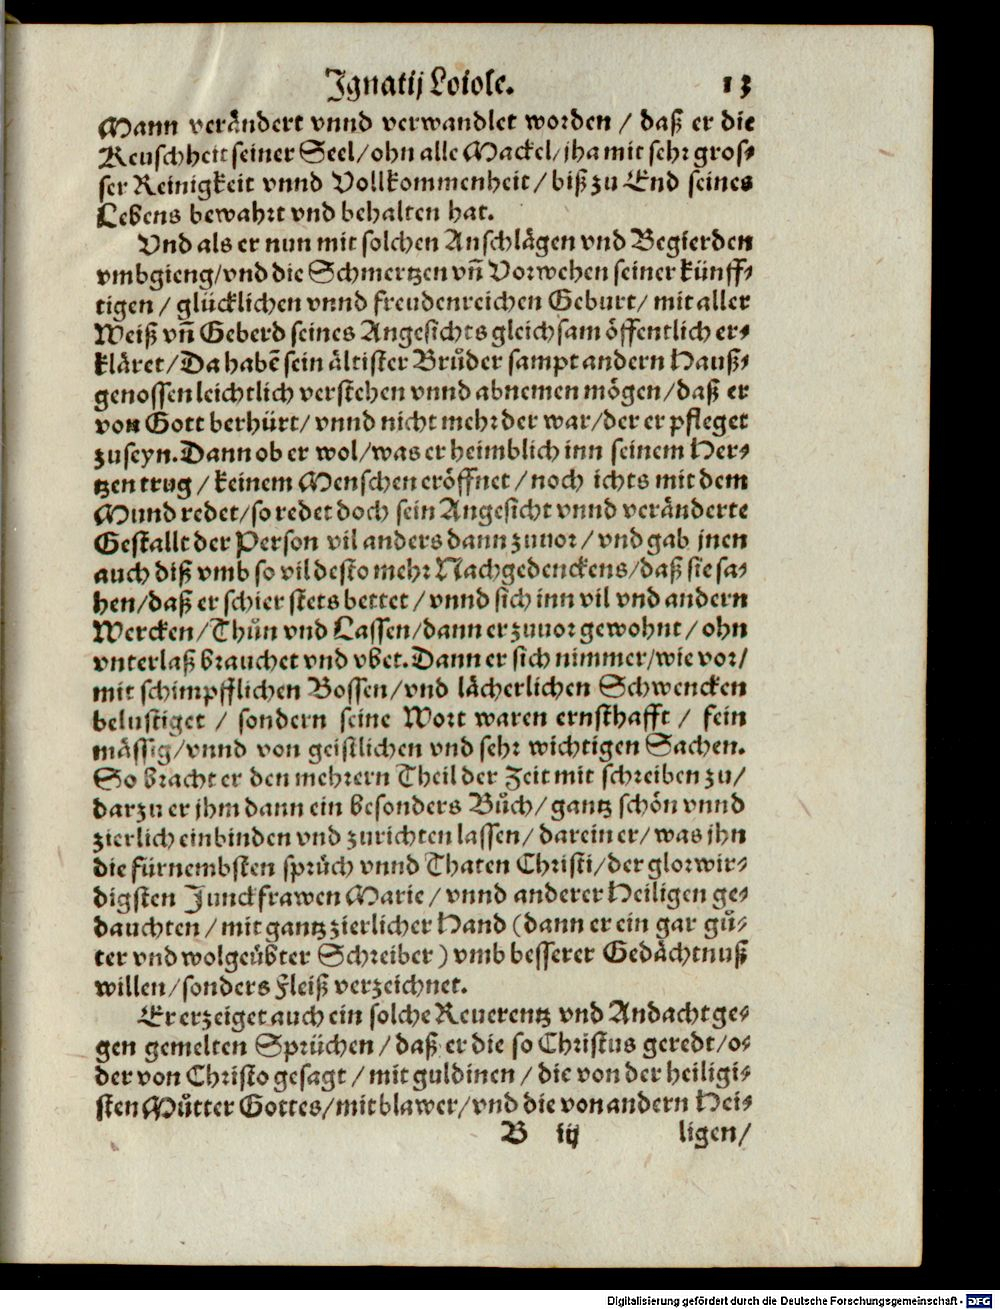 Ignatij Loiole. 13
Mann verändert vnnd verwandlet worden / daß er die
Keuschheit seiner Seel/ohn alle Mackel/jha mit sehr gros⸗
ser Reinigkeit vnnd Vollkommenheit/biß zu End seines
Lebens bewahrt vnd behalten hat.
Vnd als er nun mit solchen Anschlägen vnd Begierden
vmbgieng/vnd die Schmertzen vn̄ Vorwehen seiner künff⸗
tigen / glücklichen vnnd freudenreichen Geburt/ mit aller
Weiß vn̄ Geberd seines Angesichts gleichsam öffentlich er⸗
kläret/Da habē sein ältister Brůder sampt andern Hauß⸗
genossen leichtlich verstehen vnnd abnemen mögen/daß er
von Gott berhürt/vnnd nicht mehr der war/der er pfleget
zuseyn. Dann ob er wol/was er heimblich inn seinem Her⸗
tzen trug / keinem Menschen eröffnet / noch ichts mit dem
Mund redet/so redet doch sein Angesicht vnnd veränderte
Gestallt der Person vil anders dann zuuor / vnd gab jnen
auch diß vmb so vil desto mehr Nachgedenckens/daß sie sa⸗
hen/daß er schier stets bettet / vnnd sich inn vil vnd andern
Wercken/Thůn vnd Lassen/dann er zuuor gewohnt / ohn
vnterlaß brauchet vnd vbet. Dann er sich nimmer/wie vor/
mit schimpfflichen Bossen/vnd lächerlichen Schwencken
belustiget / sondern seine Wort waren ernsthafft / fein
mässig/vnnd von geistlichen vnd sehr wichtigen Sachen.
So bracht er den mehrern Theil der Zeit mit schreiben zu/
darzu er jhm dann ein besonders Bůch/gantz schön vnnd
zierlich einbinden vnd zurichten lassen/ darein er/ was jhn
die fürnembsten sprüch vnnd Thaten Christi/der glorwir⸗
digsten Junckfrawen Marie / vnnd anderer Heiligen ge⸗
dauchten / mit gantz zierlicher Hand (dann er ein gar gů⸗
ter vnd wolgeübter Schreiber) vmb besserer Gedächtnuß
willen/sonders Fleiß verzeichnet.
Er erzeiget auch ein solche Reuerentz vnd Andacht ge⸗
gen gemelten Sprüchen / daß er die so Christus geredt/o⸗
der von Christo gesagt / mit guldinen / die von der heiligi⸗
sten Můtter Gottes/mit blawer/vnd die von andern Hei⸗
B iij ligen/
Digitalisierung gefördert durch die Deutsche Forschungsgemeinschaft - DFG